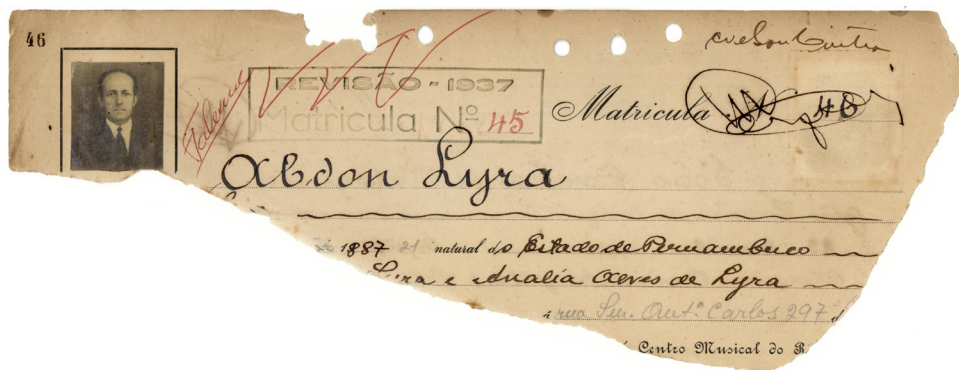 46
Faleceu
REVISÃO - 1937
Matricula Nº 45
Matricula 46
Abdon Lyra
1887 21 natural do Estado de Pernambuco
Lyra e Analia Alves de Lyra
á rua Sen. Antº Carlos 297
Centro Musical do R